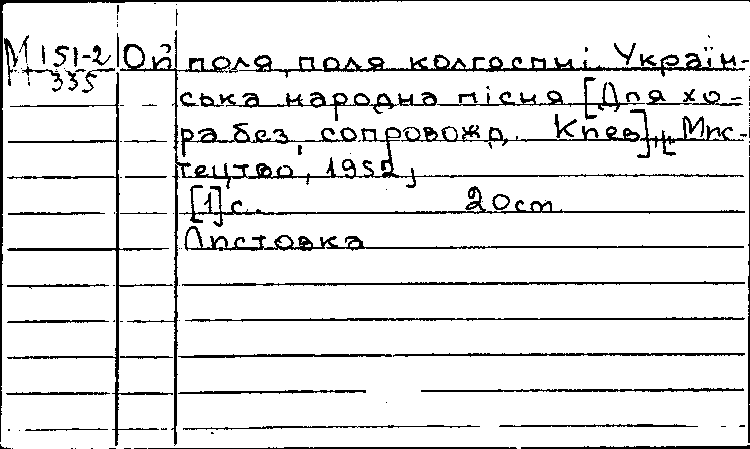 М 151-2/335 Ой поля, поля колгоспні. Україн-
ська народна пісня [Для хо-
ра без сопровожд. Киев], [Мис-
тецтво, 1952,
[1] с. 20 cm
Листовка